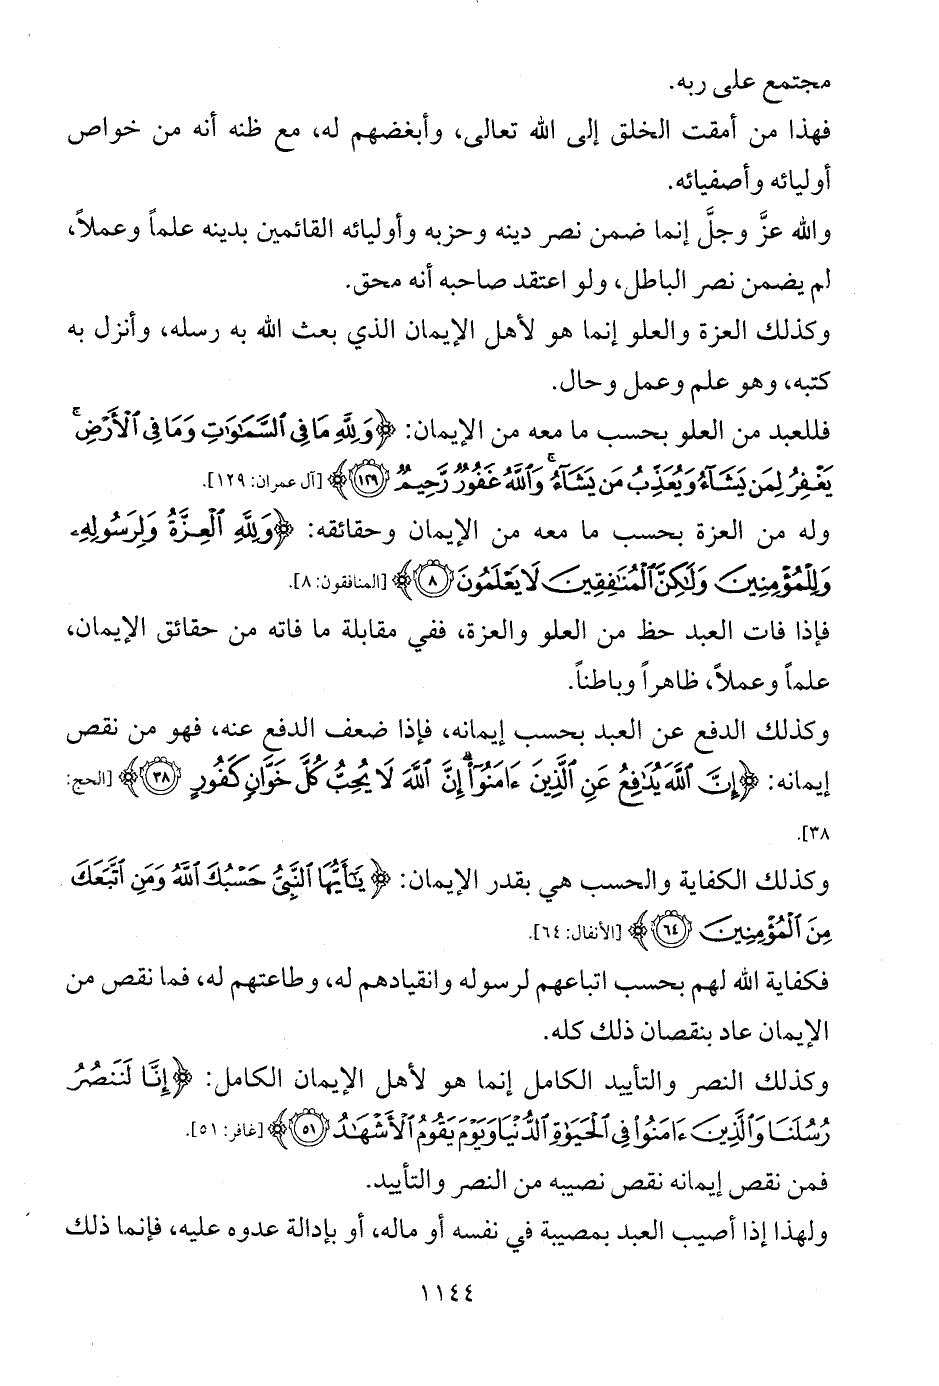 مجتمع على ربه.
فهذا من أمقت الخلق إلى الله تعالى، وأبغضهم له، مع ظنه أنه من خواص
أوليائه وأصفيائه.
والله عزَّ وجلَّ إنما ضمن نصر دينه وحزبه وأوليائه القائمين بدينه علماً وعملاً،
لم يضمن نصر الباطل، ولو اعتقد صاحبه أنه محق.
وكذلك العزة والعلو إنما هو لأهل الإيمان الذي بعث الله به رسله، وأنزل به
كتبه، وهو علم وعمل وحال.
فللعبد من العلو بحسب ما معه من الإيمان: ﴿وَلِلَّهِ مَا فِي ٱلسَّمَٰوَٰتِ وَمَا فِي ٱلۡأَرۡضِۚ
يَغۡفِرُ لِمَن يَشَآءُ وَيُعَذِّبُ مَن يَشَآءُۚ وَٱللَّهُ غَفُورٞ رَّحِيمٞ ١٢٩﴾ [آل عمران: ١٢٩].
وله من العزة بحسب ما معه من الإيمان وحقائقه: ﴿وَلِلَّهِ ٱلۡعِزَّةُ وَلِرَسُولِهِۦ
وَلِلۡمُؤۡمِنِينَ وَلَٰكِنَّ ٱلۡمُنَٰفِقِينَ لَا يَعۡلَمُونَ ٨﴾ [المنافقون: ٨].
فإذا فات العبد حظ من العلو والعزة، ففي مقابلة ما فاته من حقائق الإيمان،
علماً وعملاً، ظاهراً وباطناً.
وكذلك الدفع عن العبد بحسب إيمانه، فإذا ضعف الدفع عنه، فهو من نقص
إيمانه: ﴿إِنَّ ٱللَّهَ يُدَٰفِعُ عَنِ ٱلَّذِينَ ءَامَنُوٓاْۗ إِنَّ ٱللَّهَ لَا يُحِبُّ كُلَّ خَوَّانٖ كَفُورٍ ٣٨﴾ [الحج:
٣٨].
وكذلك الكفاية والحسب هي بقدر الإيمان: ﴿يَٰٓأَيُّهَا ٱلنَّبِيُّ حَسۡبُكَ ٱللَّهُ وَمَنِ ٱتَّبَعَكَ
مِنَ ٱلۡمُؤۡمِنِينَ ٦٤﴾ [الأنفال: ٦٤].
فكفاية الله لهم بحسب اتباعهم لرسوله وانقيادهم له، وطاعتهم له، فما نقص من
الإيمان عاد بنقصان ذلك كله.
وكذلك النصر والتأييد الكامل إنما هو لأهل الإيمان الكامل: ﴿إِنَّا لَنَنصُرُ
رُسُلَنَا وَٱلَّذِينَ ءَامَنُواْ فِي ٱلۡحَيَوٰةِ ٱلدُّنۡيَا وَيَوۡمَ يَقُومُ ٱلۡأَشۡهَٰدُ ٥١﴾ [غافر: ٥١].
فمن نقص إيمانه نقص نصيبه من النصر والتأييد.
ولهذا إذا أصيب العبد بمصيبة في نفسه أو ماله، أو بإدالة عدوه عليه، فإنما ذلك
١١٤٤